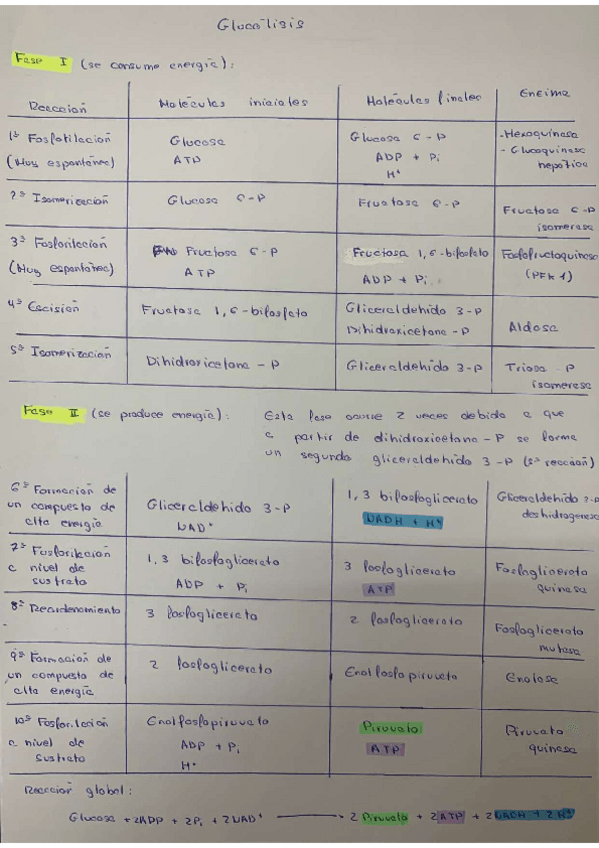 Glucolisis
Fase I (se consume energía):
Reacción Moléculas iniciales Moléculas finales Enzima
1ª Fosforilación Glucosa Glucosa 6-P -Hexoquinasa
(Muy espontánea) ATP ADP + Pi - Glucoquinasa
H⁺ hepática
2ª Isomerización Glucosa 6-P Fructosa 6-P Fructosa 6-P
isomerasa
3ª Fosforilación Fructosa 6-P Fructosa 1,6-bifosfato Fosfofructoquinasa
(Muy espontánea) ATP ADP + Pi (PFK1)
4ª Escisión Fructosa 1,6-bifosfato Gliceraldehido 3-P Aldosa
Dihidroxicetona-P
5ª Isomerización Dihidroxicetona-P Gliceraldehido 3-P Triosa-P
isomerasa
Fase II (se produce energía): Esta fase ocurre 2 veces debido a que
a partir de dihidroxicetona-P se forma
un segundo gliceraldehido 3-P (5ª reacción)
6ª Formación de Gliceraldehido 3-P 1,3 bifosfoglicerato Gliceraldehido 3-P
un compuesto de NAD⁺ NADH + H⁺ deshidrogenasa
alta energía
7ª Fosforilación 1,3 bifosfoglicerato 3 fosfoglicerato Fosfoglicerato
a nivel de ADP + Pi ATP quinasa
sustrato
8ª Reordenamiento 3 fosfoglicerato 2 fosfoglicerato Fosfoglicerato
mutasa
9ª Formación de 2 fosfoglicerato Enolfosfopiruvato Enolasa
un compuesto de
alta energía
10ª Fosforilación Enolfosfopiruvato Piruvato Piruvato
a nivel de ADP + Pi ATP quinasa
sustrato H⁺
Reacción global:
Glucosa + 2ADP + 2Pi + 2NAD⁺ → 2 Piruvato + 2ATP + 2NADH + 2H⁺